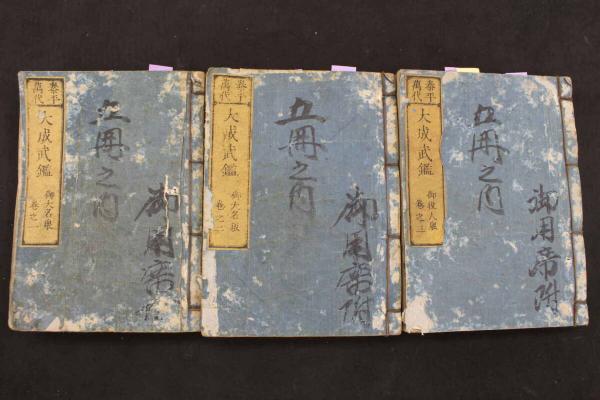 泰平
萬代
大成武鑑
御大名衆
巻之一
五冊之内
御用帝
泰平
萬代
大成武鑑
御大名衆
巻之二
五冊之内
御用帝附
泰平
萬代
大成武鑑
御役人衆
巻之三
五冊之内
御用帝附